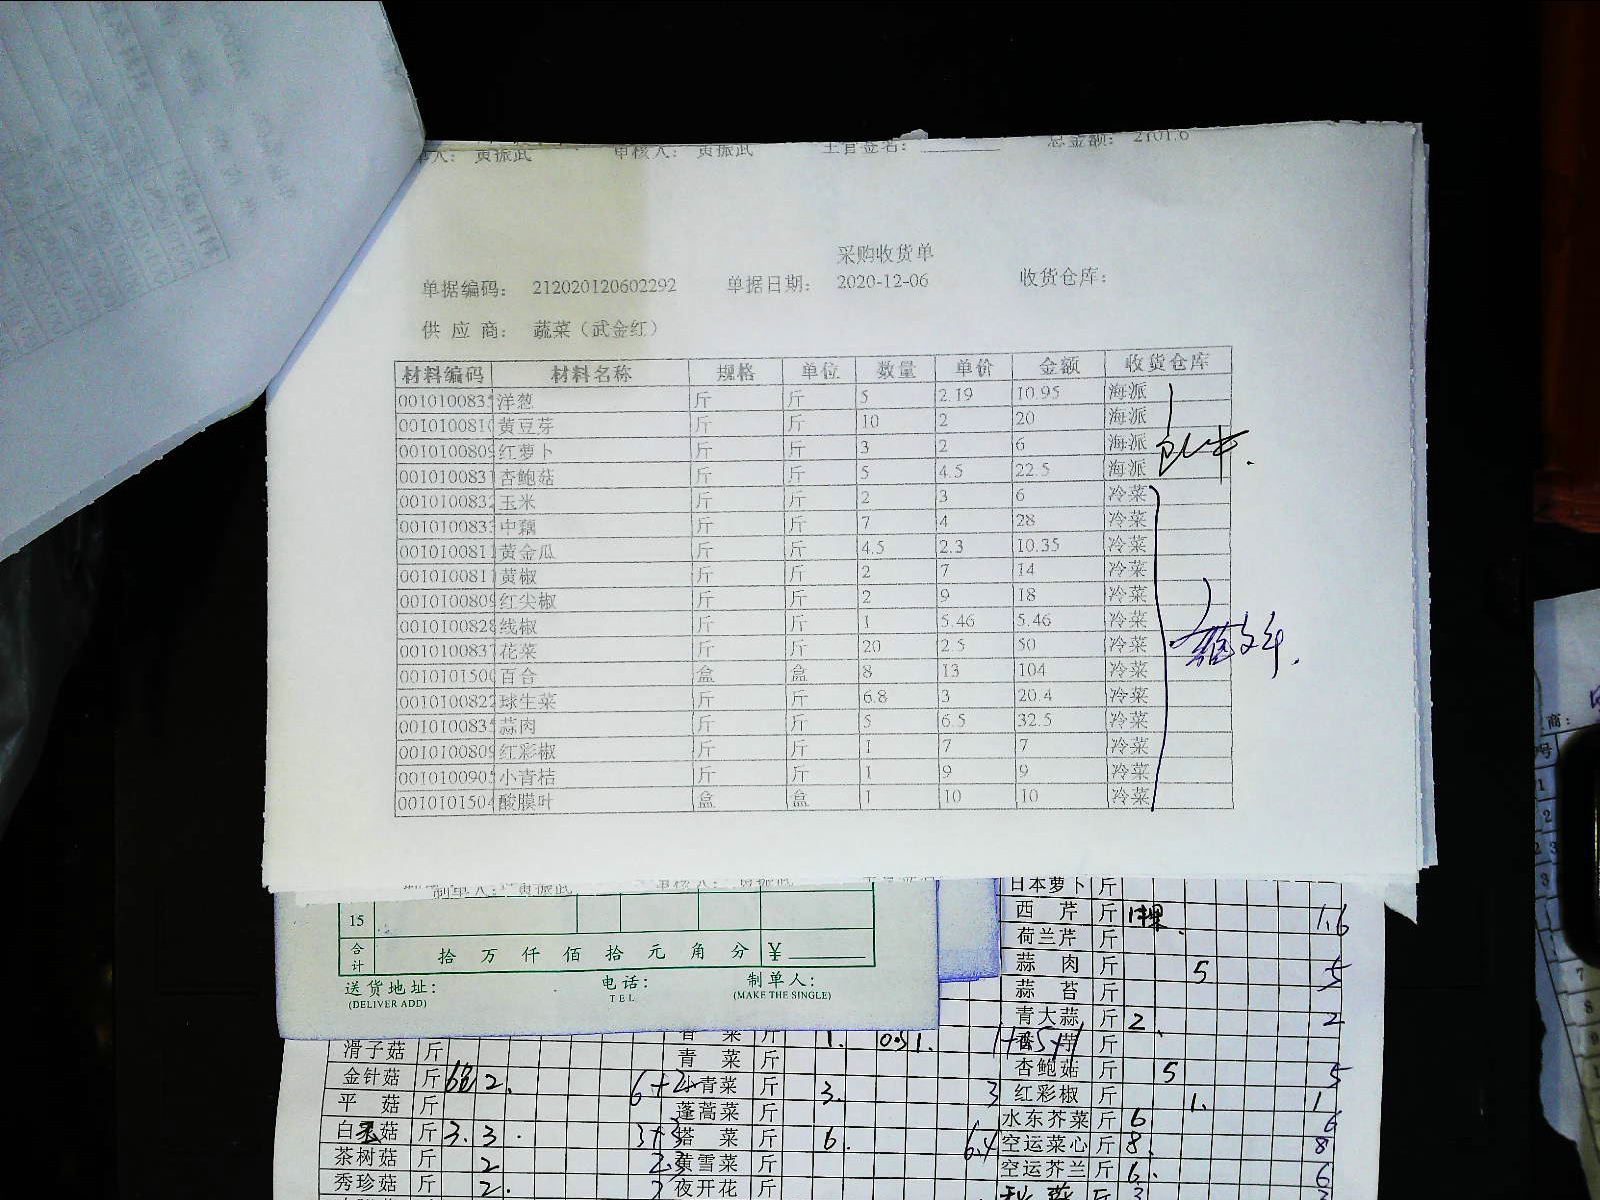 审核人： 黄振武 主管签名： 总金额： 2101.6
采购收货单
单据编码： 212020120602292 单据日期： 2020-12-06 收货仓库：
供 应 商： 蔬菜（武金红）
材料编码 材料名称 规格 单位 数量 单价 金额 收货仓库
001010083 洋葱 斤 斤 5 2.19 10.95 海派
001010081 黄豆芽 斤 斤 10 2 20 海派
001010080 红萝卜 斤 斤 3 2 6 海派
001010083 杏鲍菇 斤 斤 5 4.5 22.5 海派
001010083 玉米 斤 斤 2 3 6 冷菜
001010083 中藕 斤 斤 7 4 28 冷菜
001010081 黄金瓜 斤 斤 4.5 2.3 10.35 冷菜
001010081 黄椒 斤 斤 2 7 14 冷菜
001010080 红尖椒 斤 斤 2 9 18 冷菜
001010082 线椒 斤 斤 1 5.46 5.46 冷菜
001010083 花菜 斤 斤 20 2.5 50 冷菜
001010150 百合 盒 盒 8 13 104 冷菜
001010082 球生菜 斤 斤 6.8 3 20.4 冷菜
001010083 蒜肉 斤 斤 5 6.5 32.5 冷菜
001010080 红彩椒 斤 斤 1 7 7 冷菜
001010090 小青桔 斤 斤 1 9 9 冷菜
001010150 酸膜叶 盒 盒 1 10 10 冷菜
制单人： 黄振武 审核人： 黄振武
15
合计 拾 万 仟 佰 拾 元 角 分 ¥
送货地址： 电话： 制单人：
(DELIVER ADD) TEL (MAKE THE SINGLE)
日本萝卜 斤
西 芹 斤 1.6
荷兰芹 斤
蒜 肉 斤 5 5
蒜 苔 斤
青大蒜 斤 2 2
杏鲍菇 斤 5 5
红彩椒 斤 1. 1
水东芥菜 斤 6 6
空运菜心 斤 8 8
空运芥兰 斤 6 6
滑子菇 斤 青 菜 斤
金针菇 斤 2. 小青菜 斤 3. 3
平 菇 斤 蓬蒿菜 斤
白玉菇 斤 3. 3. 3+3 塔 菜 斤 6. 6.4
茶树菇 斤 2 黄雪菜 斤
秀珍菇 斤 2. 夜开花 斤